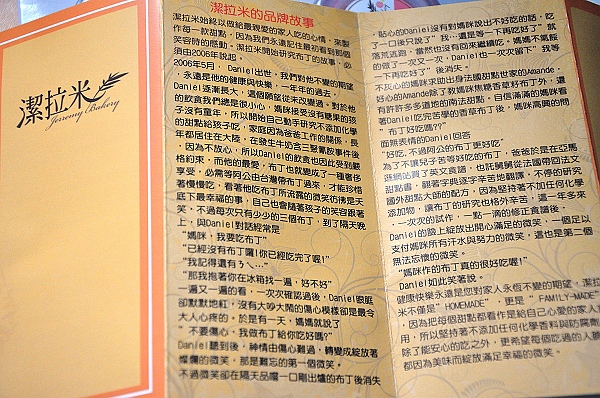 潔拉米
Jeremy Bakery
潔拉米的品牌故事
潔拉米始終以做給最親愛的家人吃的心情，來製
作每一款甜點，因為我們永遠記住最初看到那個
笑容時的感動。潔拉米開始研究布丁的故事，必
須由2006年說起
2006年5月，Daniel出世，我們對他不變的期望
，永遠是他的健康與快樂，一年年的過去，
Daniel逐漸長大，這個願望從未改變過，對於他
的飲食我們總是很小心，媽咪接受沒有糖果的孩
子沒有童年，所以開始自己動手研究不添加化學
的甜點給孩子吃，家庭因為爸爸工作的關係，長
年都居住在大陸，在發生牛奶含三聚氰胺事件後
，因為不放心，所以Daniel的飲食也因此受到嚴
格約束，而他的最愛，布丁也就變成了一種奢侈
享受，必需等阿公由台灣帶布丁過來，才能珍惜
著慢慢吃，看著他吃布丁所流露的微笑彷彿是天
底下最幸福的事，自己也會隨著孩子的笑容跟著
笑，不過每次只有少少的三個布丁，到了隔天晚
上，與Daniel對話經常是
"媽咪，我要吃布丁"
"已經沒有布丁囉!你已經吃完了喔!"
"我記得還有ㄋㄟ…"
"那我抱著你在冰箱找一遍，好不好"
一遍又一遍的看，一次次確認過後，Daniel眼眶
卻默默地紅，沒有大吵大鬧的傷心模樣卻是最令
大人心疼的，於是有一天，媽媽就說了
"不要傷心，我做布丁給你吃好嗎?"
Daniel聽到後，神情由傷心難過，轉變成綻放著
燦爛的微笑，那是難忘的第一個微笑。
不過微笑卻在隔天品嚐一口剛出爐的布丁後消失
貼心的Daniel沒有對媽咪說出不好吃的話，吃
了一口後只說了"我…還是等一下再吃好了"就
落荒逃跑，當然也沒有回來繼續吃，媽媽不氣餒
的做了一次又一次，Daniel也一次次留下"我等
一下再吃好了"後消失。
不灰心的媽咪求助出身法國甜點世家的Amande，
好心的Amande除了教媽咪焦糖香草籽布丁外，還
有許許多多道地的南法甜點，自信滿滿的媽咪看
著Daniel吃完苦學的香草布丁後，媽咪高興的問
"布丁好吃嗎??"
面無表情的Daniel回答
"好吃，不過阿公的布丁更好吃"
為了不讓兒子苦等好吃的布丁，爸爸於是在亞馬
遜網站買了英文食譜，也託舅舅從法國帶回法文
甜點書，翻著字典逐字辛苦地翻譯，不停的研究
國外甜點大師的配方，因為堅持著不加任何化學
添加物，讓布丁的研究也格外辛苦，這一年多來
，一次次的試作，一點一滴的修正食譜後，
Daniel的臉上綻放出開心滿足的微笑，一個足以
支付媽咪所有汗水與努力的微笑，這也是第二個
無法忘懷的微笑。
"媽咪作的布丁真的很好吃喔!"
Daniel如此笑著說。
健康快樂永遠是您對家人永恆不變的期望，潔拉
米不僅是"HOMEMADE"，更是"FAMILY-MADE"
，因為把每個甜點都看作是給自己心愛的家人
用，所以堅持著不添加任何化學香料與防腐劑
除了能安心的吃之外，更希望每個吃過的人
都因為美味而綻放滿足幸福的微笑。